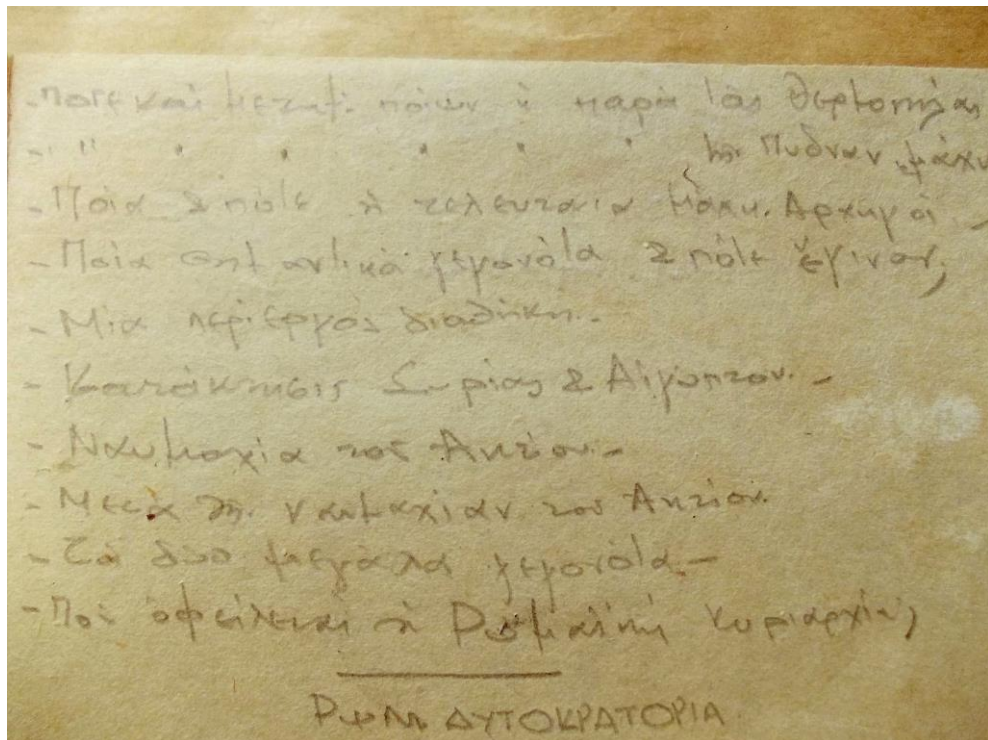 - Πότε καί μεταξύ ποίων ἡ παρά τάς Θερμοπύλας
- " " " " " " " τῆς Πύδνας μάχη
- Ποία & πότε ἡ τελευταία Μάχη. Ἀρχηγοί -
- Ποία σημαντικά γεγονότα & πότε ἔγιναν;
- Μία περίεργος διαθήκη.-
- Κατάκτησις Συρίας & Αἰγύπτου. -
- Ναυμαχία τοῦ Ἀκτίου.-
- Μετά τήν ναυμαχίαν τοῦ Ἀκτίου.
- Τά δύο μεγάλα γεγονότα.-
- Ποῦ ὀφείλεται ἡ Ρωμαϊκή Κυριαρχία;
ΡΩΜ ΑΥΤΟΚΡΑΤΟΡΙΑ